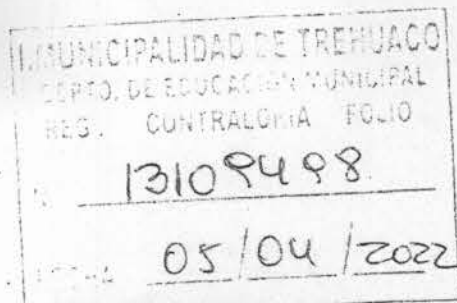 I. MUNICIPALIDAD DE TREHUACO
DEPTO. DE EDUCACION MUNICIPAL
REG. CONTRALORIA FOLIO
N 13109498
FECHA 05/04/2022